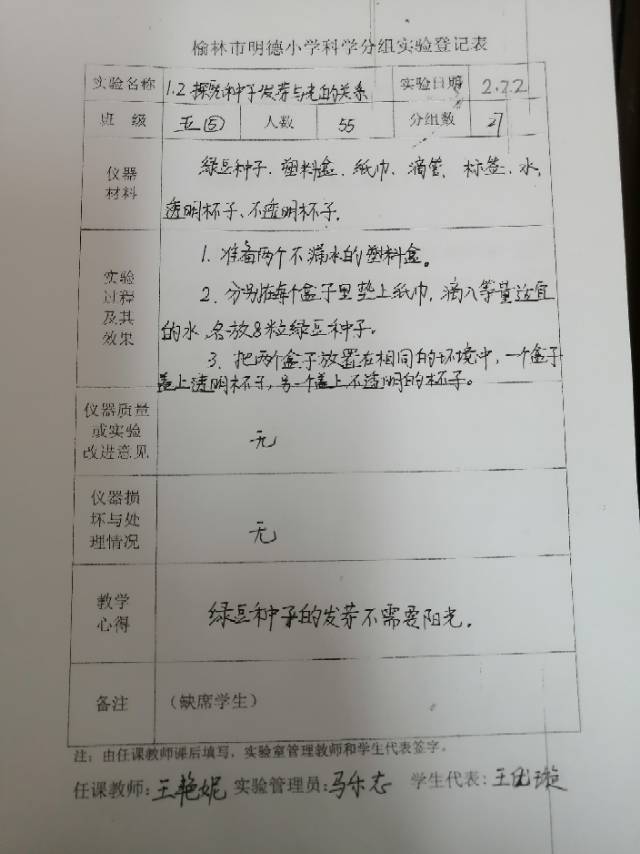 榆林市明德小学科学分组实验登记表
实验名称 1.2 探究种子发芽与光的关系 实验日期 2.22
班 级 五(5) 人数 55 分组数 27
仪器材料 绿豆种子、塑料盒、纸巾、滴管、标签、水、
透明杯子、不透明杯子。
实验过程及其效果 1. 准备两个不漏水的塑料盒。
2. 分别在每个盒子里垫上纸巾,滴入等量适宜
的水,各放8粒绿豆种子。
3. 把两个盒子放置在相同的环境中,一个盒子
盖上透明杯子,另一个盖上不透明的杯子。
仪器质量或实验改进意见 无
仪器损坏与处理情况 无
教学心得 绿豆种子的发芽不需要阳光。
备注 (缺席学生)
注:由任课教师课后填写,实验室管理教师和学生代表签字。
任课教师:王艳妮 实验管理员:马乐志 学生代表:王